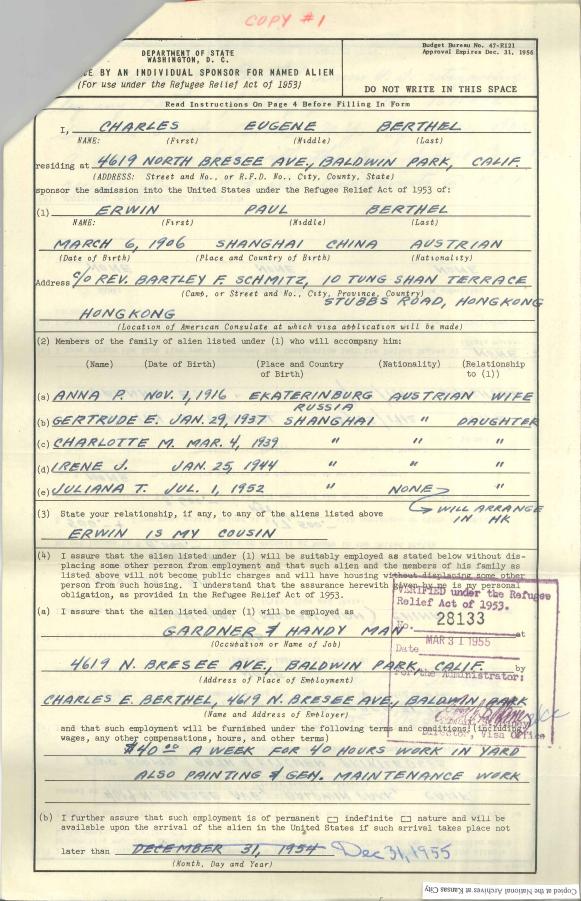 COPY #1
DEPARTMENT OF STATE
WASHINGTON, D. C.
E BY AN INDIVIDUAL SPONSOR FOR NAMED ALIEN
(For use under the Refugee Relief Act of 1953)
Budget Bureau No. 47-R121
Approval Expires Dec. 31, 1956
DO NOT WRITE IN THIS SPACE
Read Instructions On Page 4 Before Filling In Form
I, CHARLES EUGENE BERTHEL
NAME: (First) (Middle) (Last)
residing at 4619 NORTH BRESEE AVE., BALDWIN PARK, CALIF.
(ADDRESS: Street and No., or R.F.D. No., City, County, State)
sponsor the admission into the United States under the Refugee Relief Act of 1953 of:
(1) ERWIN PAUL BERTHEL
NAME: (First) (Middle) (Last)
MARCH 6, 1906 SHANGHAI CHINA AUSTRIAN
(Date of Birth) (Place and Country of Birth) (Nationality)
Address c/o REV. BARTLEY F. SCHMITZ, 10 TUNG SHAN TERRACE
(Camp, or Street and No., City, Province, Country)
STUBBS ROAD, HONGKONG
HONGKONG
(Location of American Consulate at which visa application will be made)
(2) Members of the family of alien listed under (1) who will accompany him:
(Name) (Date of Birth) (Place and Country of Birth) (Nationality) (Relationship to (1))
(a) ANNA P. NOV. 1, 1916 EKATERINBURG AUSTRIAN WIFE
RUSSIA
(b) GERTRUDE E. JAN. 29, 1937 SHANGHAI " DAUGHTER
(c) CHARLOTTE M. MAR. 4, 1939 " " "
(d) IRENE J. JAN. 25, 1944 " " "
(e) JULIANA T. JUL. 1, 1952 " NONE "
WILL ARRANGE
IN HK
(3) State your relationship, if any, to any of the aliens listed above
ERWIN IS MY COUSIN
(4) I assure that the alien listed under (1) will be suitably employed as stated below without dis-
placing some other person from employment and that such alien and the members of his family as
listed above will not become public charges and will have housing without displacing some other
person from such housing. I understand that the assurance herewith given by me is my personal
obligation, as provided in the Refugee Relief Act of 1953.
VERIFIED under the Refugee
Relief Act of 1953.
No. 28133 at
Date MAR 31 1955
by
For the Administrator:
Director, Visa Office
(a) I assure that the alien listed under (1) will be employed as
GARDNER & HANDY MAN
(Occupation or Name of Job)
4619 N. BRESEE AVE., BALDWIN PARK, CALIF.
(Address of Place of Employment)
CHARLES E. BERTHEL, 4619 N. BRESEE AVE., BALDWIN PARK
(Name and Address of Employer)
and that such employment will be furnished under the following terms and conditions: (including
wages, any other compensations, hours, and other terms)
$40.00 A WEEK FOR 40 HOURS WORK IN YARD
ALSO PAINTING & GEN. MAINTENANCE WORK
(b) I further assure that such employment is of permanent indefinite nature and will be
available upon the arrival of the alien in the United States if such arrival takes place not
later than DECEMBER 31, 1954 Dec 31, 1955
(Month, Day and Year)
Copied at the National Archives at Kansas City